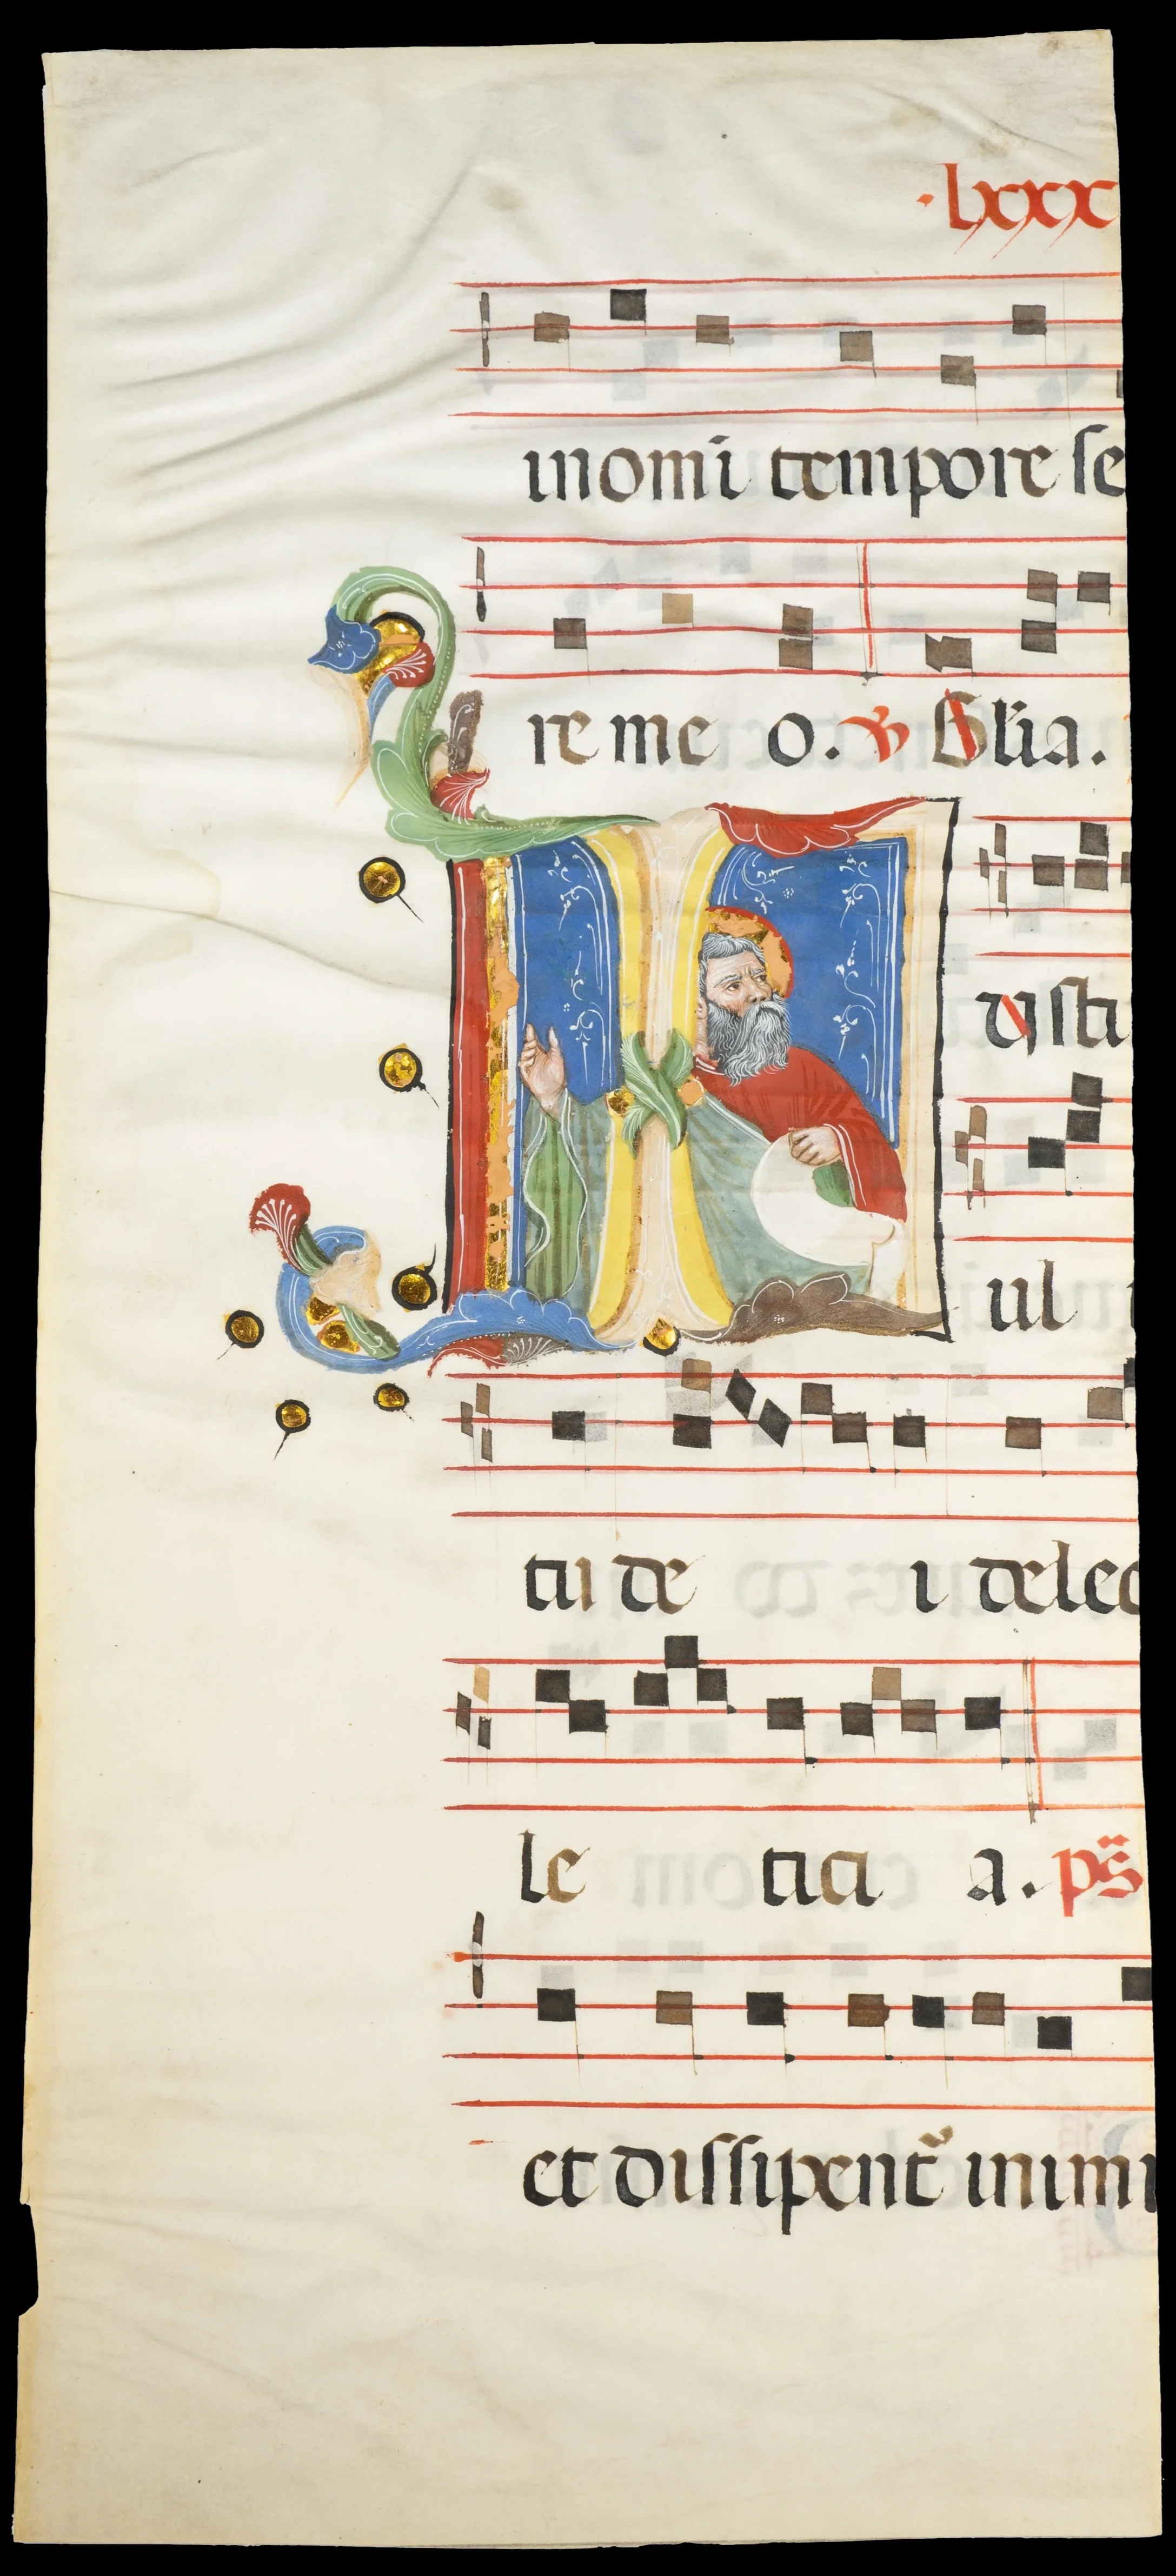 ·lxxx
in omī tempore se
re me o. ℣ Glia.
I usti
ul
tu de i delec
le tici a. ps̄
et dissipent᷑ inimi